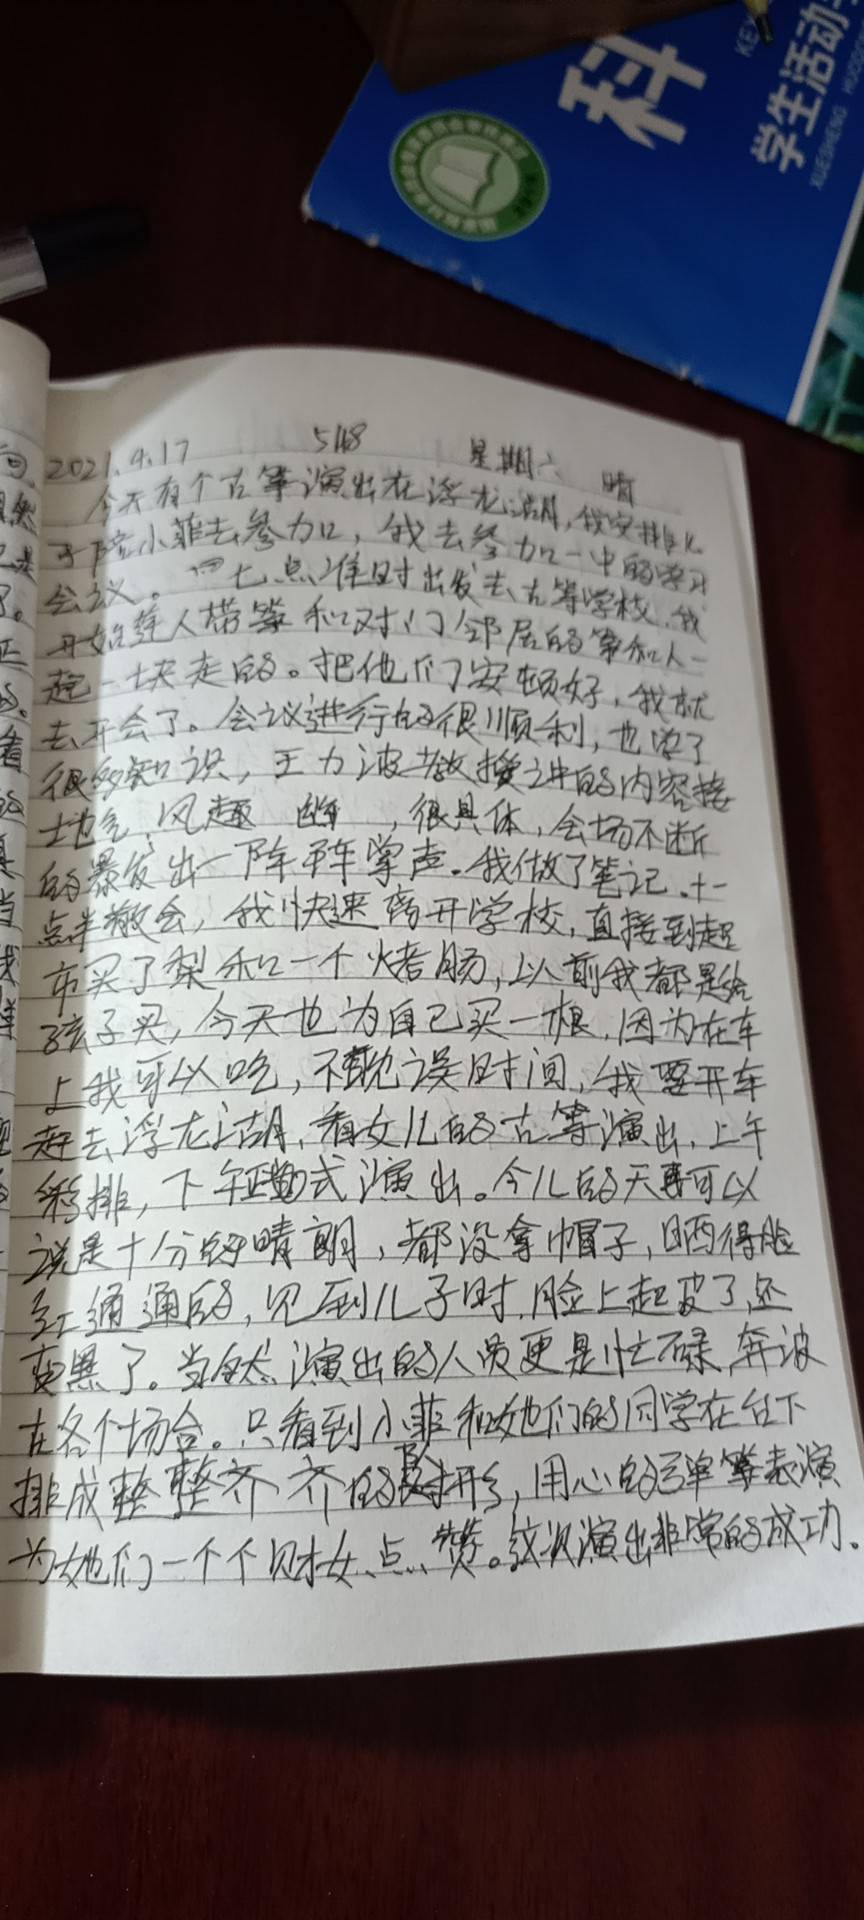 科
学生活动手
XUESHENG HUODONG
2021.9.17 5118 星期六 晴
今天有个古筝演出在浮龙湖,我安排儿
子陪小菲去参加,我去参加一中的学习
会议。七点准时出发去古筝学校,我
开始一人带筝和对门邻居的筝和人一
起一块走的。把他们安顿好,我就
去开会了。会议进行的很顺利,也学了
很多知识,王力波教授讲的内容接
地气,风趣幽,很具体,会场不断
的暴发出一阵阵掌声。我做了笔记。十一
点半散会,我快速离开学校,直接到超
市买了梨和一个烤肠,以前我都是给
孩子买,今天也为自己买一根,因为在车
上我可以吃,不耽误时间,我要开车
赶去浮龙湖,看女儿的古筝演出,上午
彩排,下午正式演出。今儿的天真可以
说是十分的晴朗,都没拿帽子,晒得脸
红通通的,见到儿子时,脸上起皮了,还
变黑了。当然演出的人员更是忙碌,奔波
在各个场合。只看到小菲和她们的同学在台下
排成整整齐齐的队形,用心的弹筝表演
为她们一个个财女点赞。这次演出非常的成功。